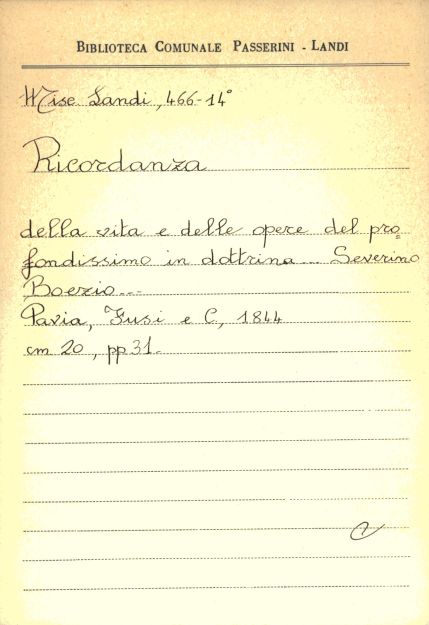 BIBLIOTECA COMUNALE PASSERINI - LANDI
Mise Landi, 466-14°
Ricordanza
della vita e delle opere del pro=
fondissimo in dottrina ... Severino
Boezio ...
Pavia, Fusi e C, 1844
cm 20, pp 31.